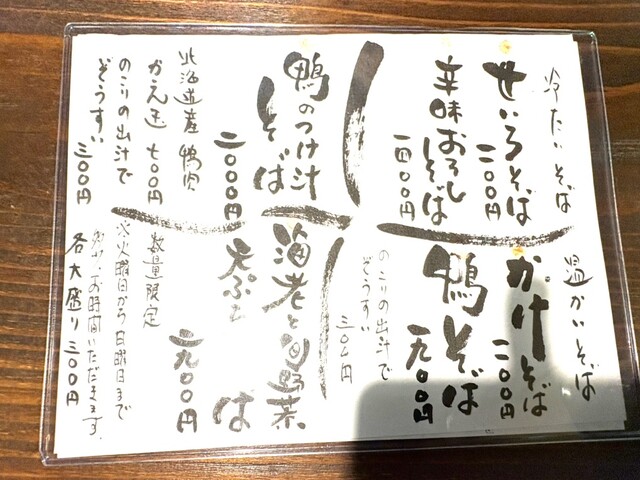 冷たいそば
せいろそば
一一〇〇円
辛味おろしそば
一四〇〇円
鴨のつけ汁そば
二〇〇〇円
北海道産 鴨肉
かえ玉 七〇〇円
のこりの出汁で
ぞうすい 三〇〇円
温かいそば
かけそば
一一〇〇円
鴨そば
一九〇〇円
のこりの出汁で
ぞうすい
三〇〇円
海老と旬野菜
天ぷらそば
一九〇〇円
数量限定
水火曜日から日曜日まで
お時間いただきます。
各大盛り 三〇〇円